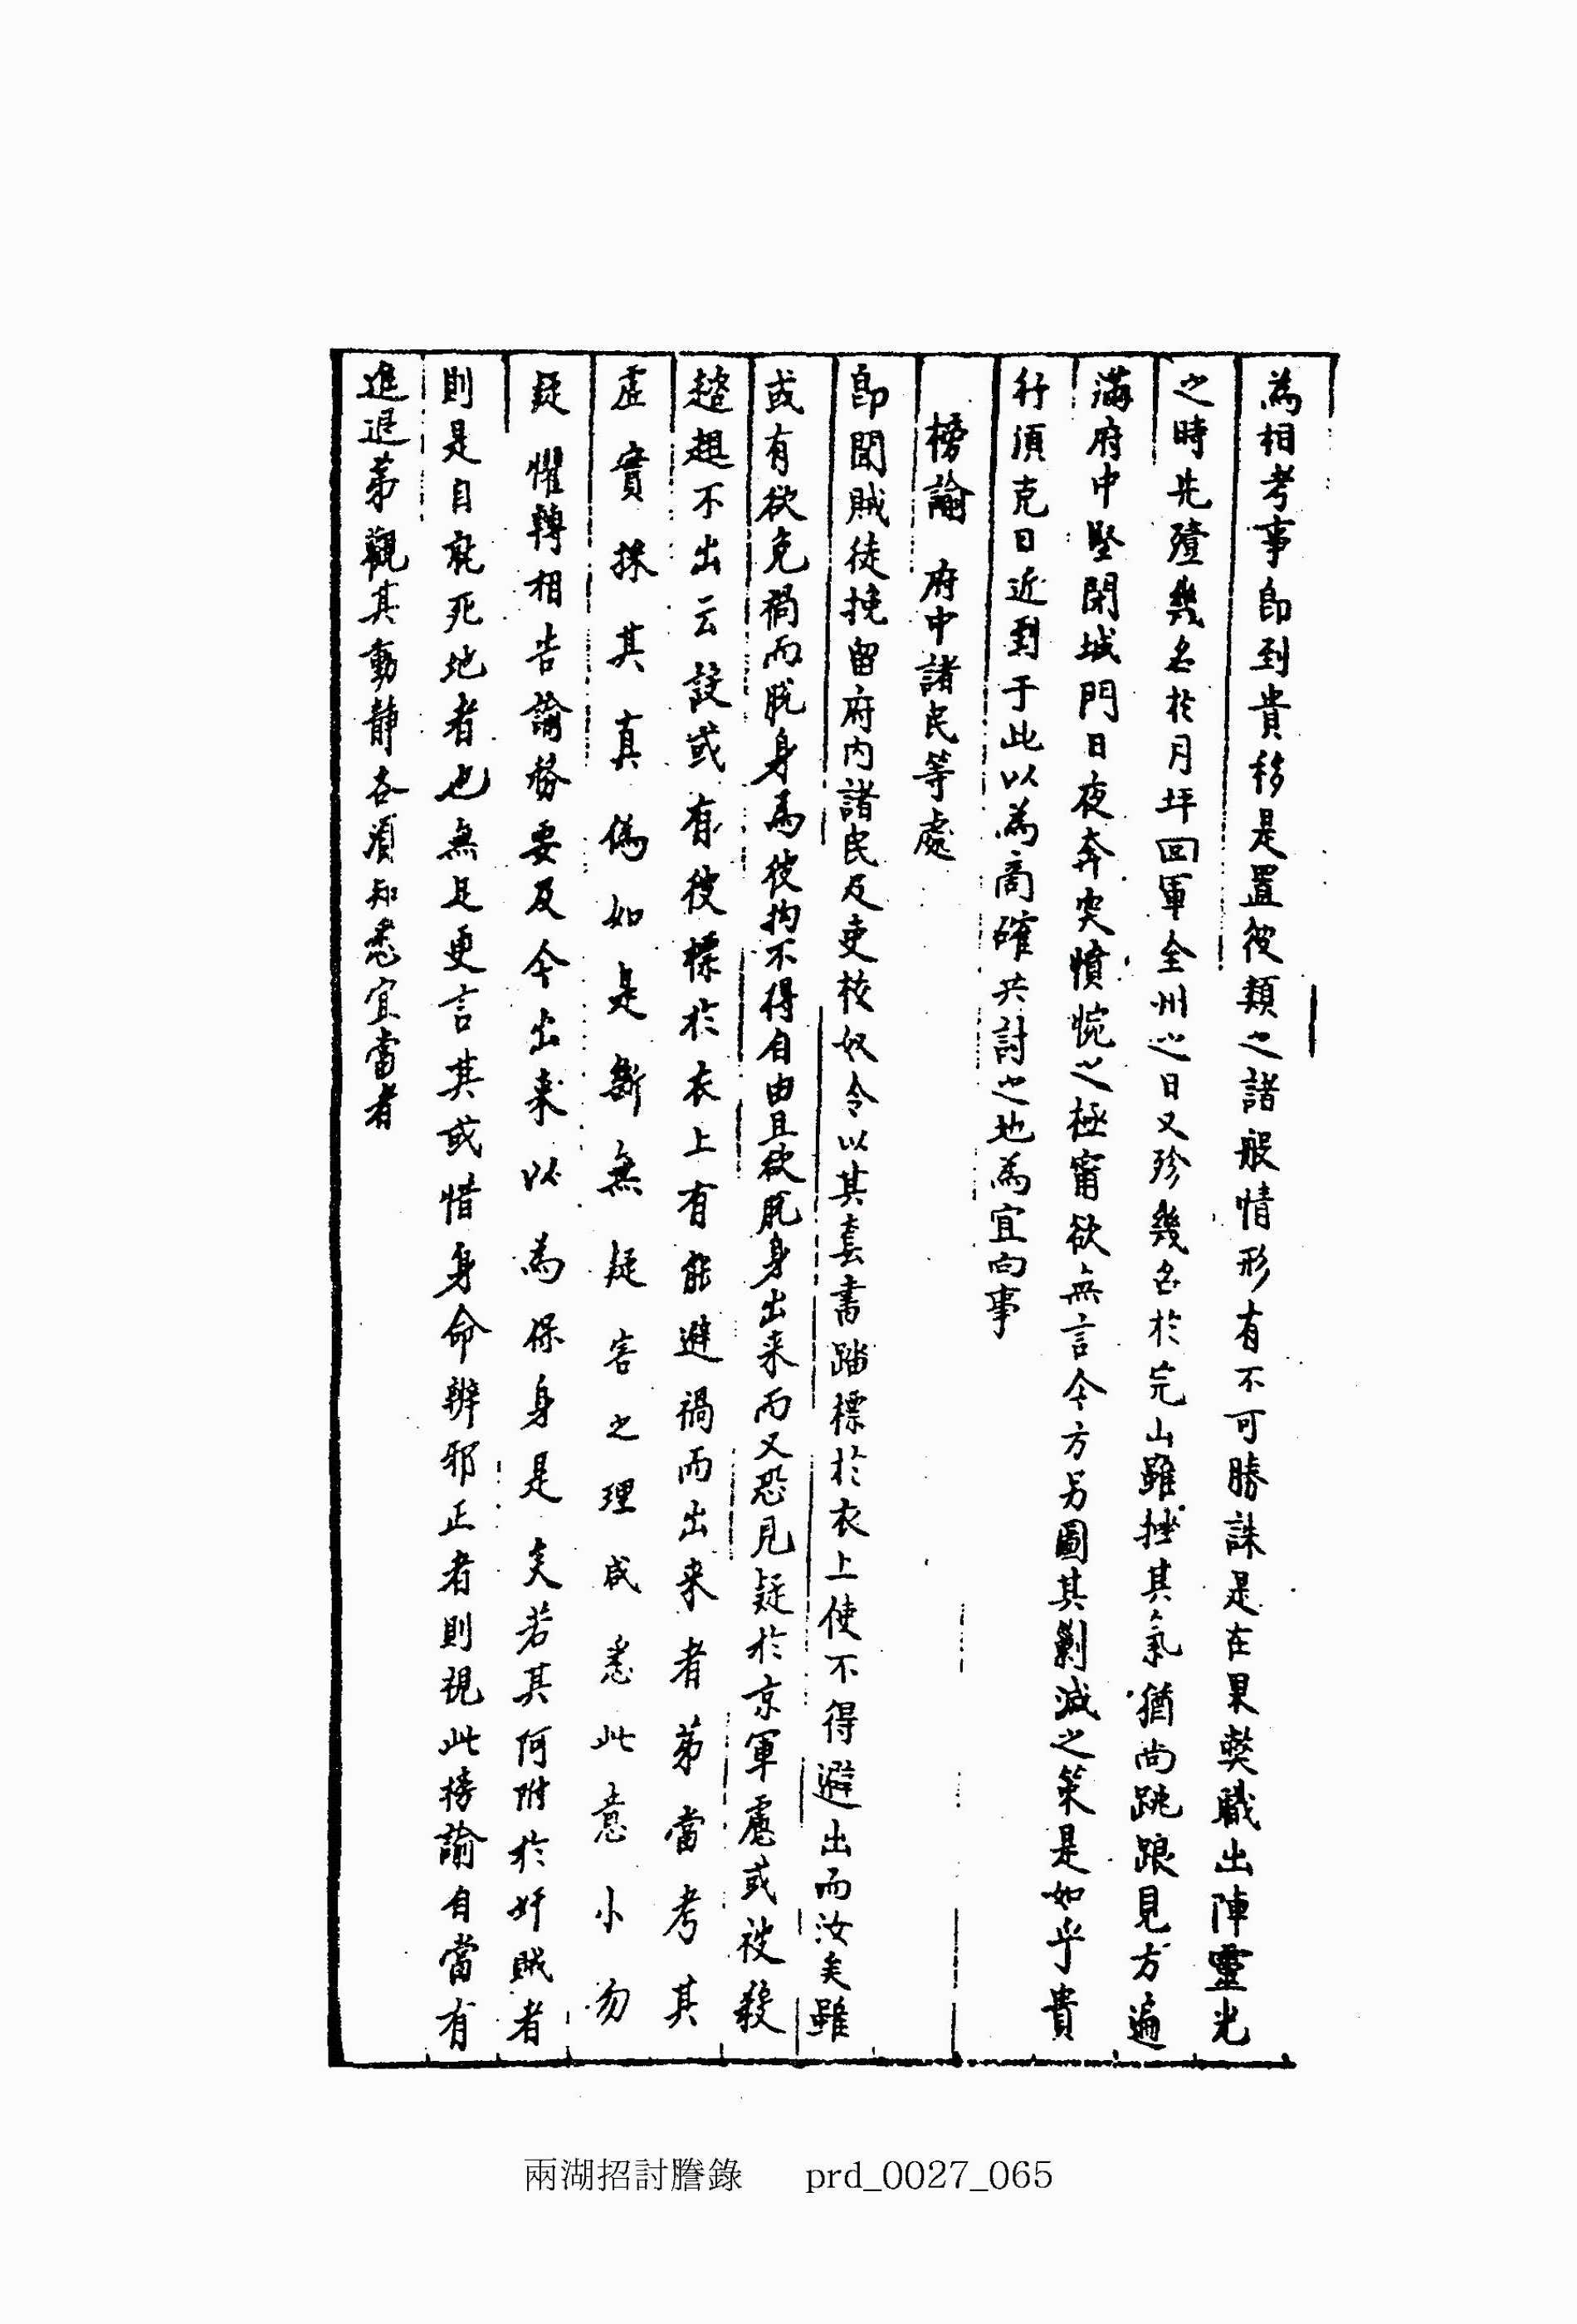 為相考事卽到貴移是置彼類之諸般情形有不可勝誅是在果獘職出陣靈光
之時先殪幾名於月坪回軍全州之日又殄幾名於完山雖挫其氣猶尚跳踉見方遍
滿府中堅閉城門日夜奔突憤惋之極甯欲無言今方另圖其剿滅之策是如乎貴
行須克日近到于此以為商確共討之地為宜向事
榜諭 府中諸民等處
卽聞賊徒挽留府內諸民及吏校奴令以其套書踏標於衣上使不得避出而汝矣雖
或有欲免禍而脫身爲彼拘不得自由且欲脫身出来而又恐見疑於京軍處或被殺
趦趄不出云設或有彼標於衣上有能避禍而出来者第當考其
虛實探其真偽如是斷無疑害之理咸悉此意小勿
疑懼轉相告諭務要及今出来以為保身是矣若其何附於奸賊者
則是自就死地者也無足更言其或惜身命辨邪正者則視此榜諭自當有
進退第觀其動靜各須知悉宜當者
兩湖招討謄錄 prd_0027_065